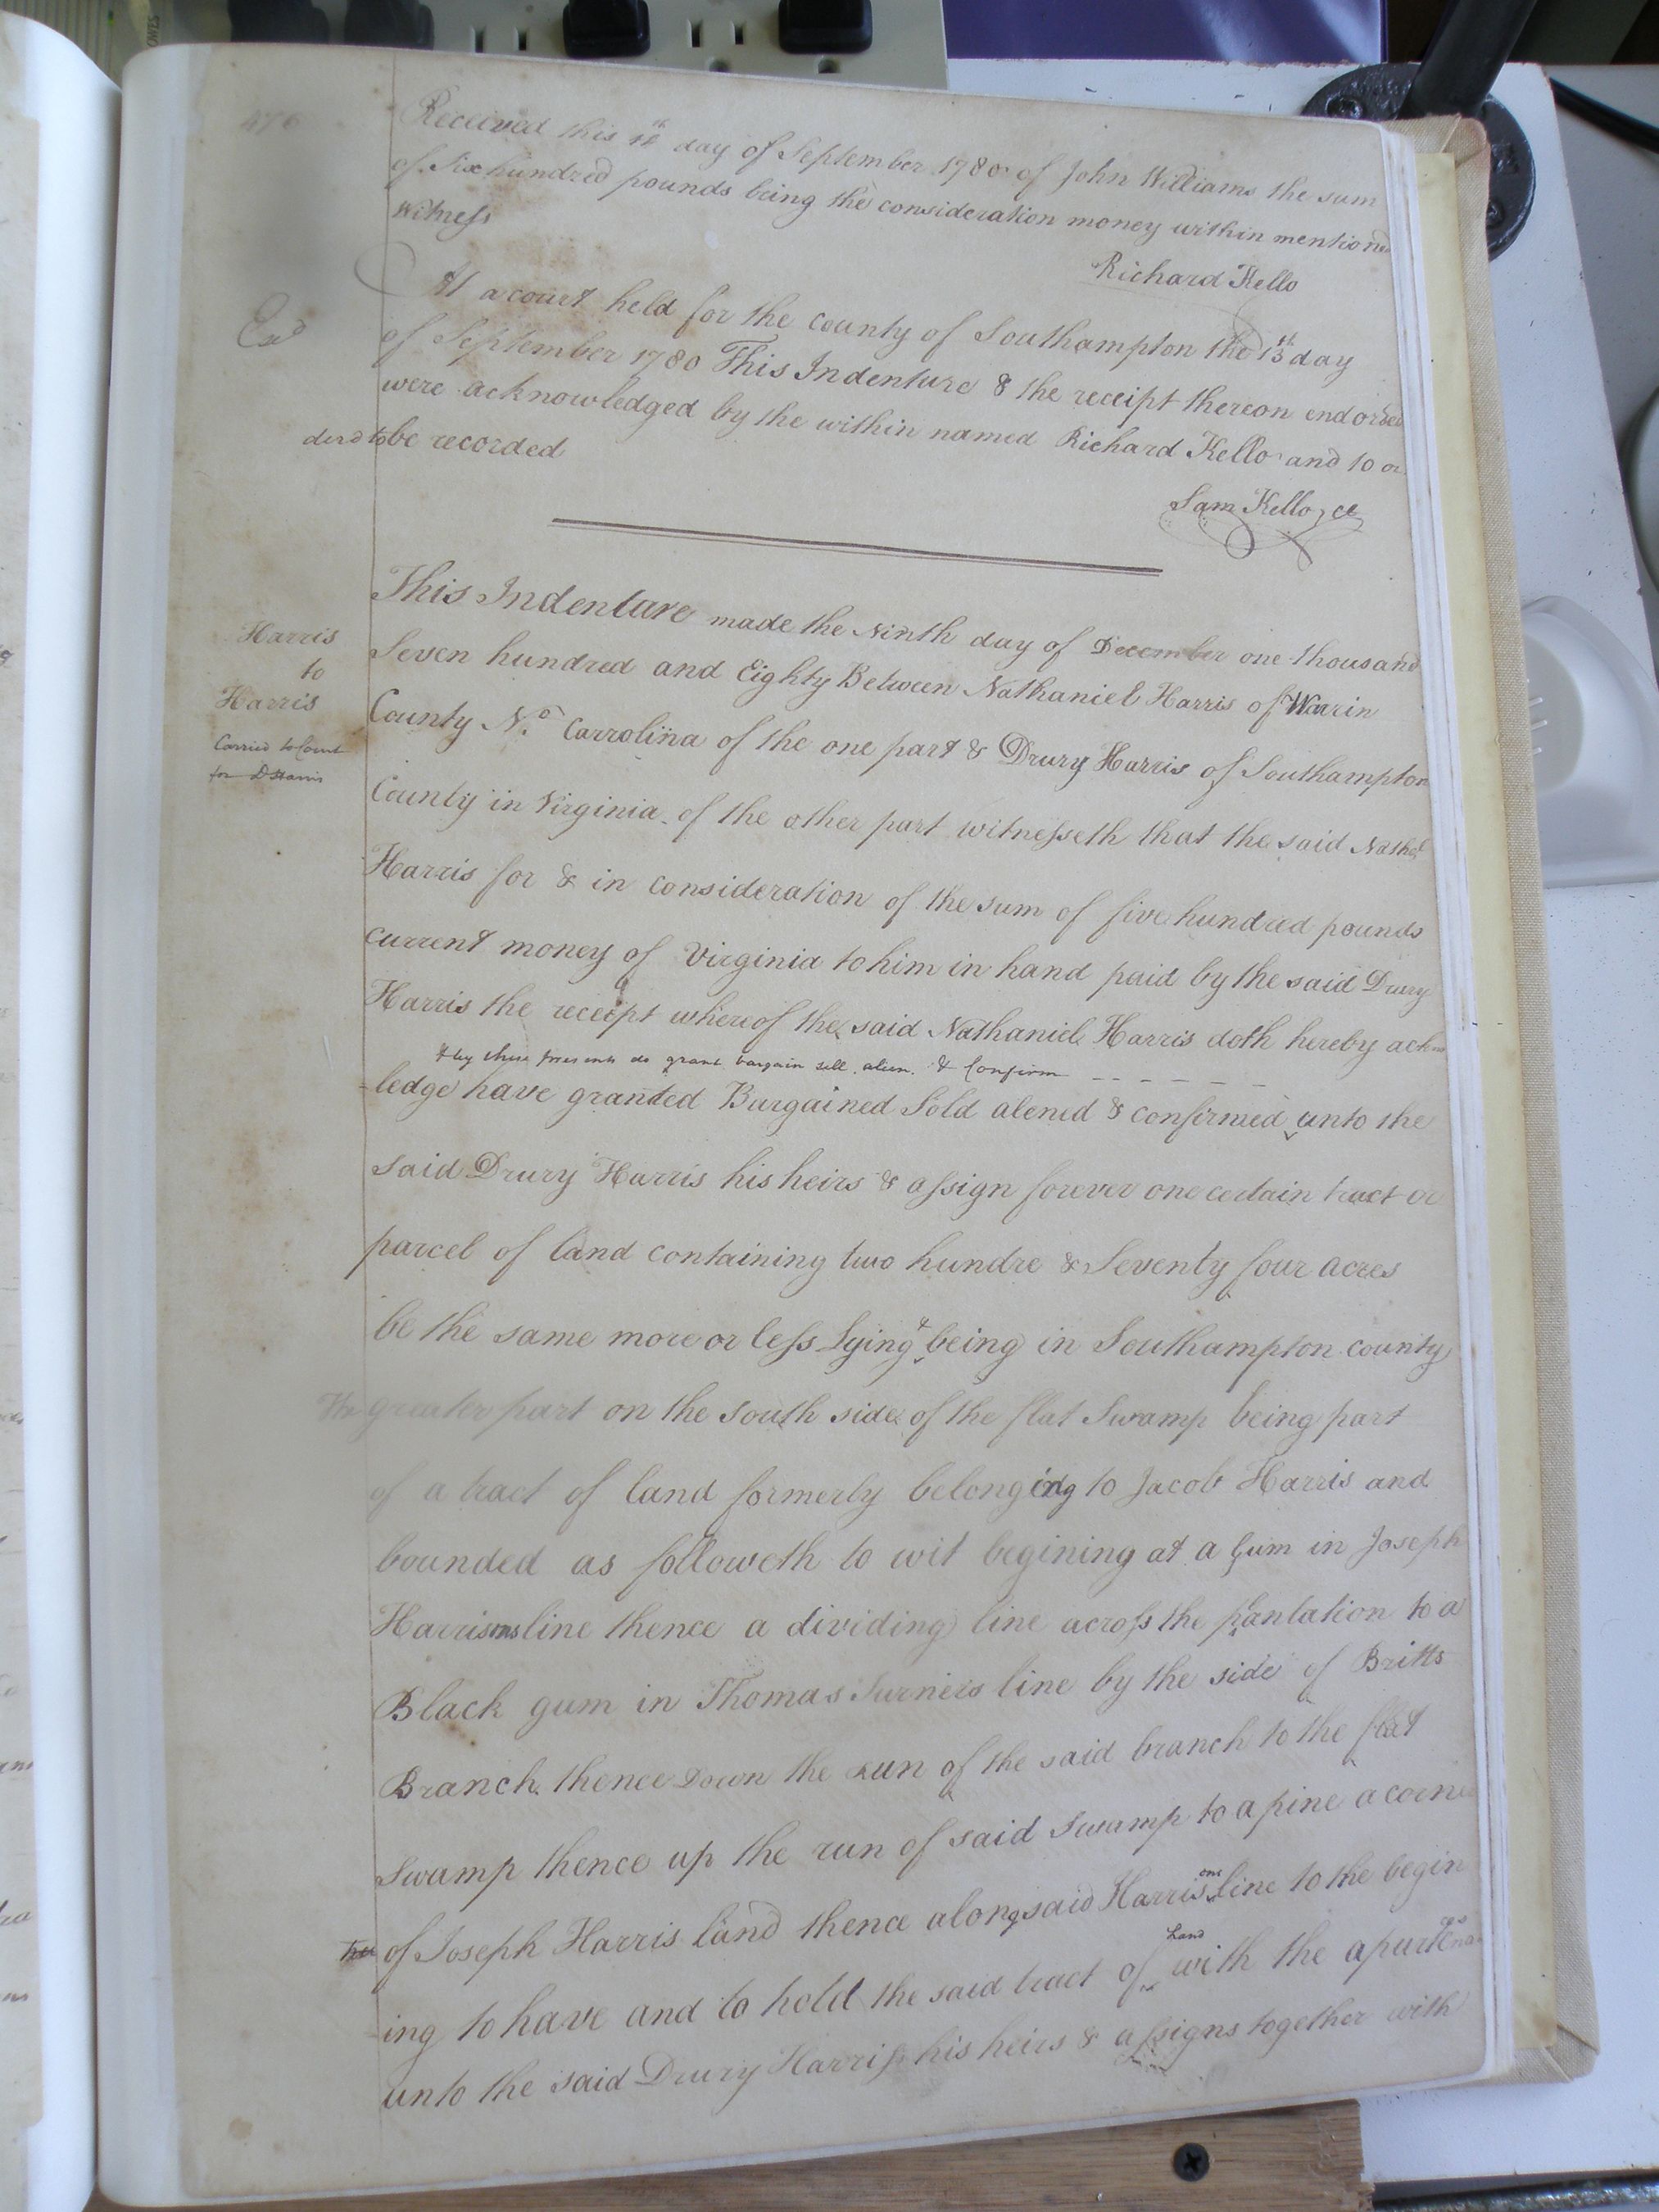 476
Received this 1st day of September 1780 of John Williams the sum
of Six hundred pounds being the consideration money within mentioned
Witness
Richard Kello
Exd
At a court held for the county of Southampton the 13th day
of September 1780 This Indenture & the receipt thereon endorsed
were acknowledged by the within named Richard Kello and to or
derd to be recorded
Sam Kello, cc
Harris
to
Harris
Carried to Court
for D Harris
This Indenture made the Ninth day of December one thousand
Seven hundred and Eighty Between Nathaniel Harris of Warrin
County No. Carrolina of the one part & Drury Harris of Southampton
County in Virginia of the other part witnesseth that the said Nathel
Harris for & in consideration of the sum of five hundred pounds
current money of Virginia to him in hand paid by the said Drury
Harris the receipt whereof the said Nathaniel Harris doth hereby ackno
& by these presents do grant bargain sell alien & Confirm
ledge have granted Bargained Sold alened & confirmed unto the
said Drury Harris his heirs & assign forever one certain tract or
parcel of land containing two hundre & Seventy four acres
be the same more or less Lying & being in Southampton county
the greater part on the south side of the flat Swamp being part
of a tract of land formerly belonging to Jacob Harris and
bounded as followeth to wit begining at a Gum in Joseph
Harrisons line thence a dividing line across the plantation to a
Black gum in Thomas Turners line by the side of Britts
Branch thence Down the run of the said branch to the flat
Swamp thence up the run of said Swamp to a pine a corner
of Joseph Harris land thence along said Harris one line to the begin
ing to have and to hold the said tract of Land with the apurtenaces
unto the said Drury Harris his heirs & assigns together with